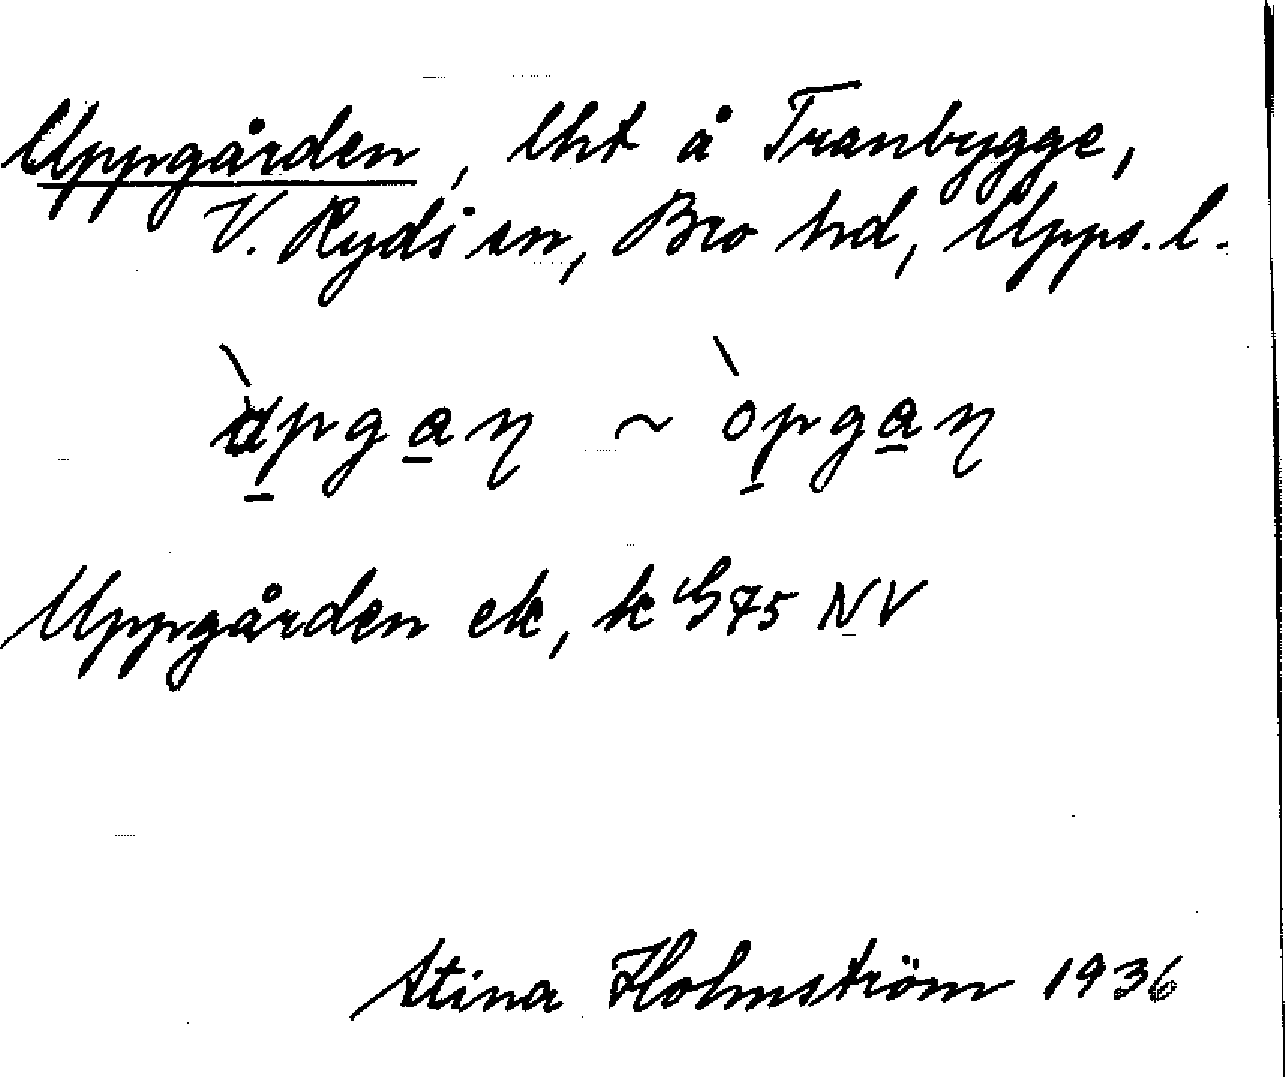 Uppgården, lht å Tranbygge,
V. Ryds sn, Bro hd, Upps. l.
àpga̲ɳ ~ òpga̲ɳ
Uppgården ek, k S75 NV
Stina Holmström 1936